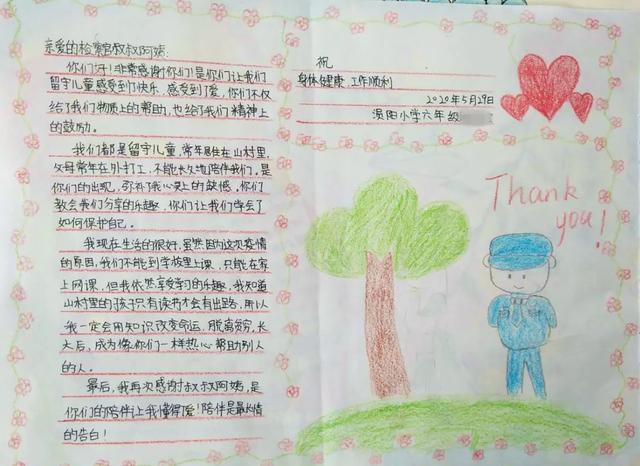 亲爱的检察官叔叔阿姨：
你们好！非常感谢你们！是你们让我们
留守儿童感受到了快乐，感受到了爱，你们不仅
给了我们物质上的帮助，也给了我们精神上
的鼓励。
我们都是留守儿童，常年居住在山村里，
父母常年在外打工，不能长久地陪伴我们。是
你们的出现，弥补了我心灵上的缺憾，你们
教会我们分享的乐趣，你们让我们学会了
如何保护自己。
我现在生活的很好，虽然因为这次疫情
的原因，我们不能到学校里上课，只能在家
上网课，但我依然享受学习的乐趣，我知道
山村里的孩子只有读书才会有出路，所以
我一定会用知识改变命运，脱离贫穷，长
大后，成为像你们一样热心帮助别人
的人。
最后，我再次感谢叔叔阿姨，是
你们的陪伴让我懂得爱！陪伴是最长情
的告白！
祝
身体健康 工作顺利
2020年5月29日
涡阳小学六年级
Thank
you!